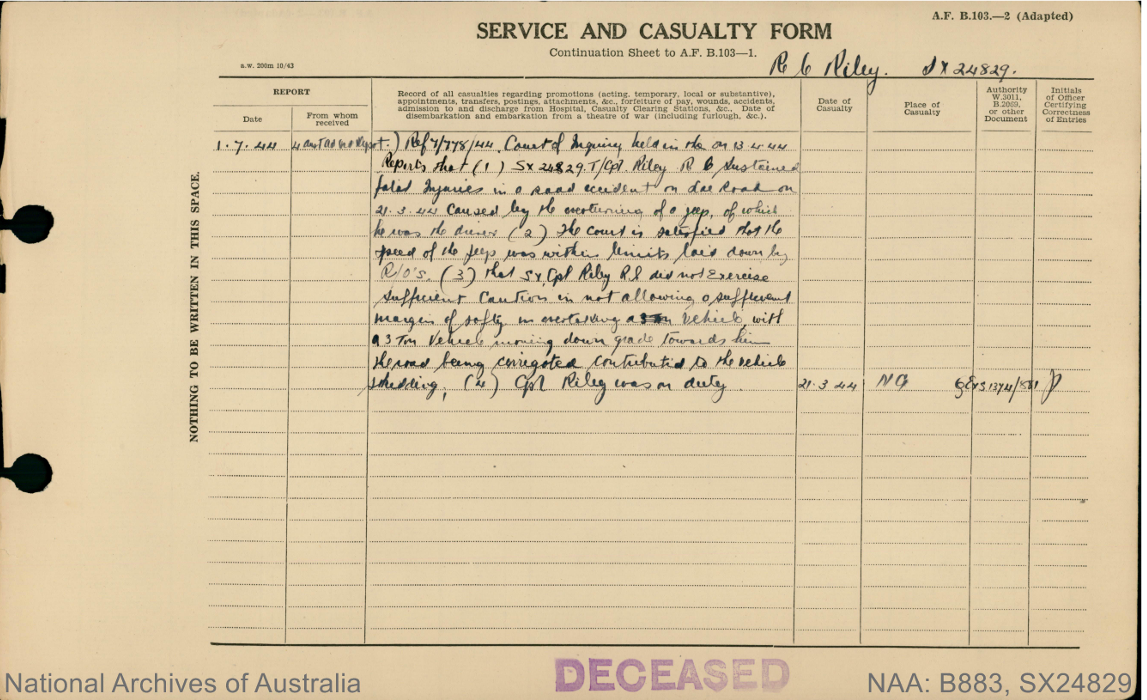 A.F. B.103.—2 (Adapted)
SERVICE AND CASUALTY FORM
Continuation Sheet to A.F. B.103—1.
a.w. 200m 10/43
R C Riley. SX24829.
REPORT
Date
From whom received
Record of all casualties regarding promotions (acting, temporary, local or substantive),
appointments, transfers, postings, attachments, &c., forfeiture of pay, wounds, accidents,
admission to and discharge from Hospital, Casualty Clearing Stations, &c., Date of
disembarkation and embarkation from a theatre of war (including furlough, &c.).
Date of Casualty
Place of Casualty
Authority W.3011, B.2069, or other Document
Initials of Officer Certifying Correctness of Entries
NOTHING TO BE WRITTEN IN THIS SPACE.
1.7.44 Ref 7/778/44. Court of Inquiry held in the on 13.4.44
Reports that (1) SX24829. T/Cpl. Riley R C Sustained
fatal Injuries in a road accident on Road on
21.3.44 caused by the overturning of a jeep, of which
he was the driver (2) The Court is satisfied that the
speed of the jeep was within limits laid down by
R/O's. (3) that SX, Cpl Riley R C did not Exercise
sufficient Caution in not allowing a sufficient
margin of safty in overtaking a 3 Ton Vehicle with
a 3 Ton Vehicle moving down grade towards him
the road being corrigated contributed to the vehicle
skidding, (4) Cpl Riley was on duty. 21.3.44 NG
DECEASED
National Archives of Australia
NAA: B883, SX24829